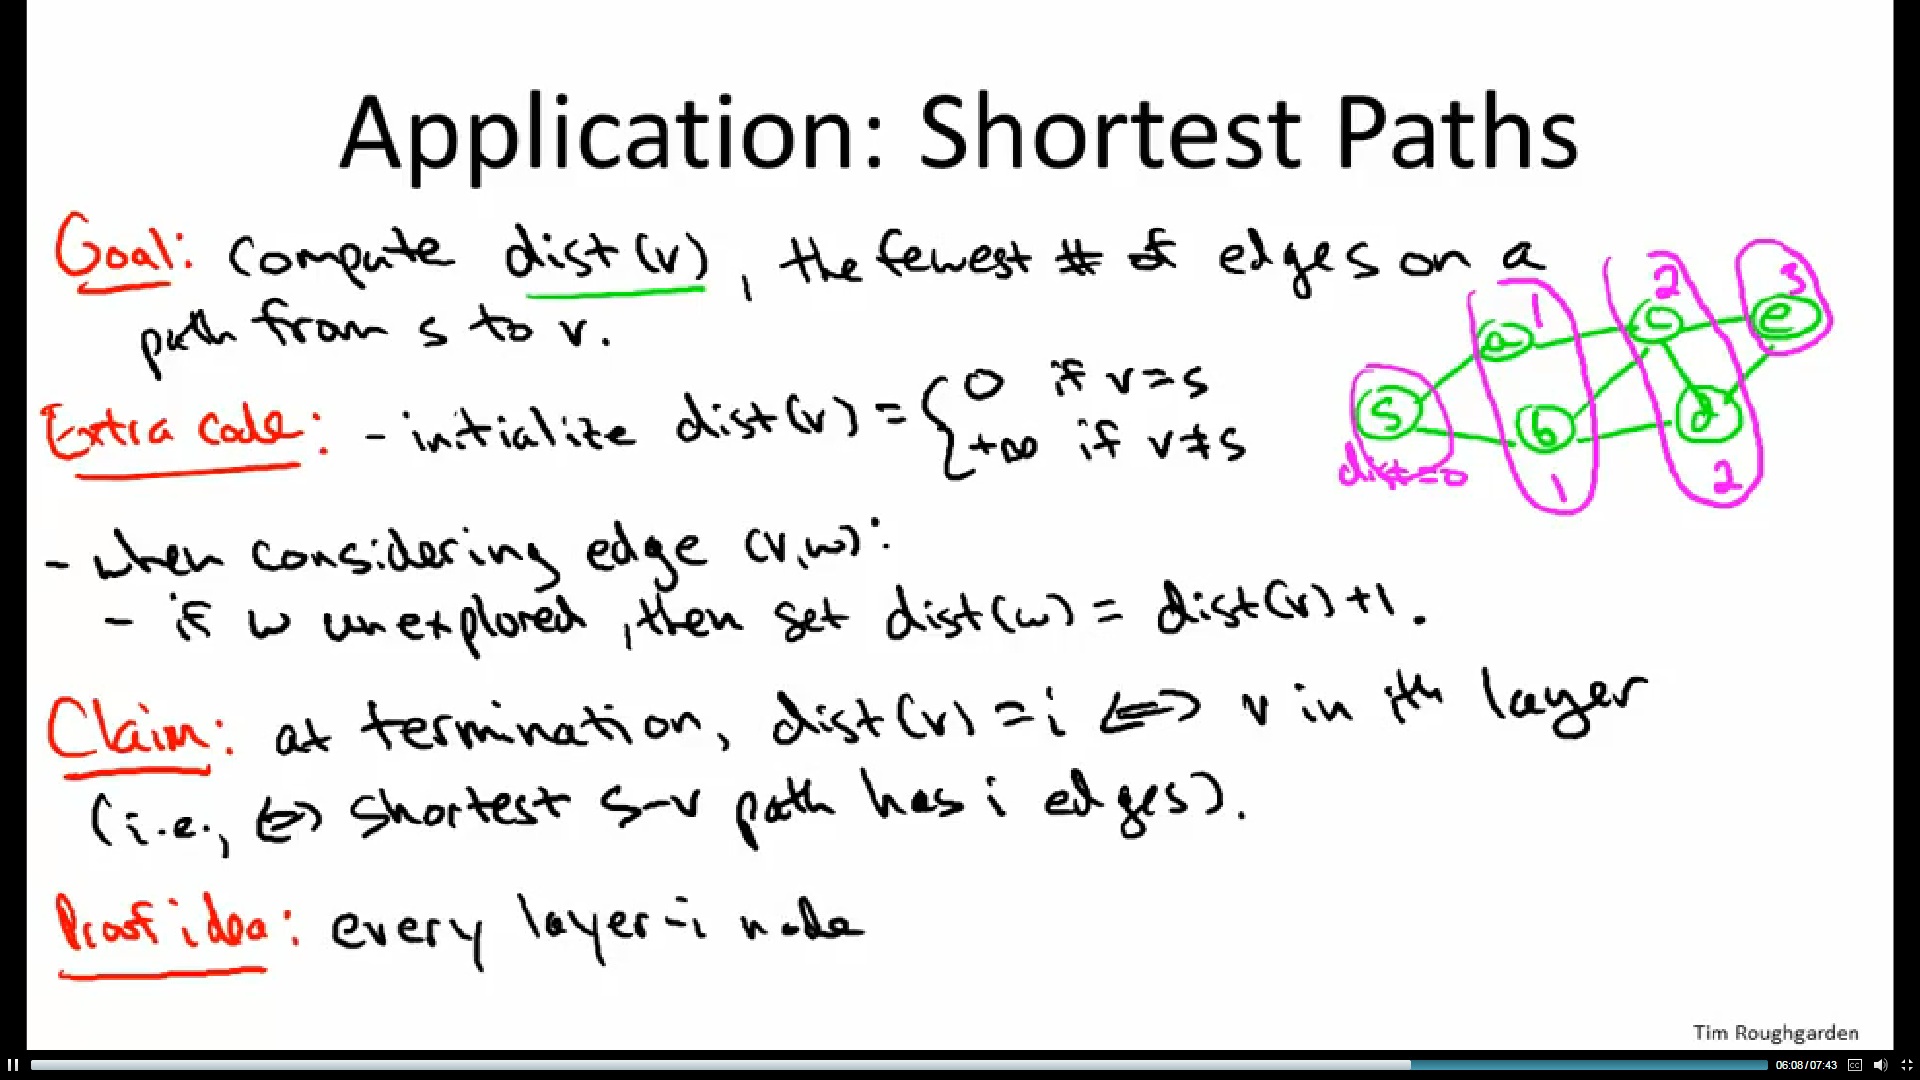 Application: Shortest Paths
Goal: compute dist(v), the fewest # of edges on a
path from s to v.
Extra code: - initialize dist(v) = { 0 if v=s
+∞ if v≠s
- when considering edge (v,w):
- if w unexplored, then set dist(w) = dist(v)+1.
Claim: at termination, dist(v) = i ⟺ v in ith layer
(i.e., ⟺ shortest s-v path has i edges).
Proof idea: every layer-i node
s
dist=0
1
a
b
1
2
c
d
2
3
e
Tim Roughgarden
06:08/07:43
CC